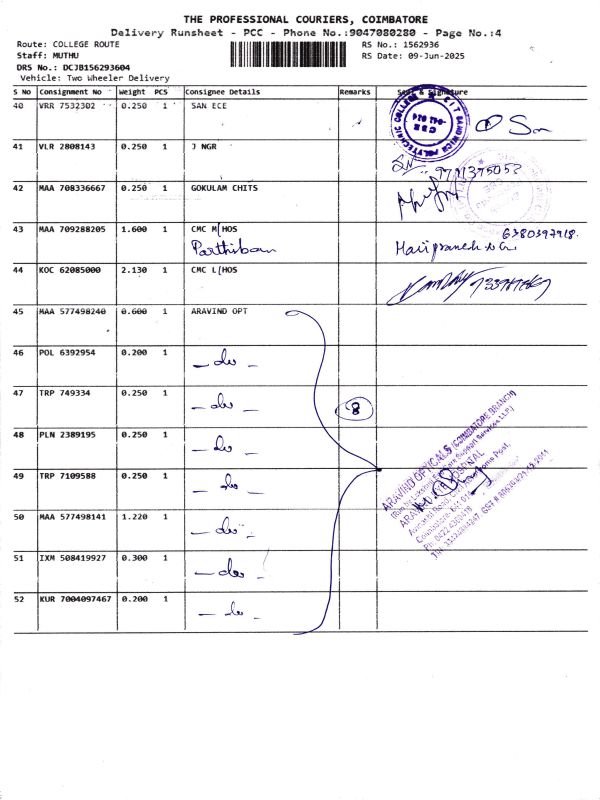 THE PROFESSIONAL COURIERS, COIMBATORE
Delivery Runsheet - PCC - Phone No.:9047080280 - Page No.:4
Route: COLLEGE ROUTE
RS No.: 1562936
Staff: MUTHU
RS Date: 09-Jun-2025
DRS No.: DCJB156293604
Vehicle: Two Wheeler Delivery
S No Consignment No Weight PCS Consignee Details Remarks Seal & Signature
40 VRR 7532302 0.250 1 SAN ECE
41 VLR 2808143 0.250 1 J NGR
42 MAA 708336667 0.250 1 GOKULAM CHITS
43 MAA 709288205 1.600 1 CMC M[HOS
Parthiban
6380397918.
44 KOC 62085000 2.130 1 CMC L[HOS
45 MAA 577498240 0.600 1 ARAVIND OPT
46 POL 6392954 0.200 1 - do -
47 TRP 749334 0.250 1 - do -
8
48 PLN 2389195 0.250 1 - do -
49 TRP 7109588 0.250 1 - do -
50 MAA 577498141 1.220 1 - do -
51 IXM 508419927 0.300 1 - do -
52 KUR 7004097467 0.200 1 - do -
ARAVIND OPTICALS (COIMBATORE BRANCH)